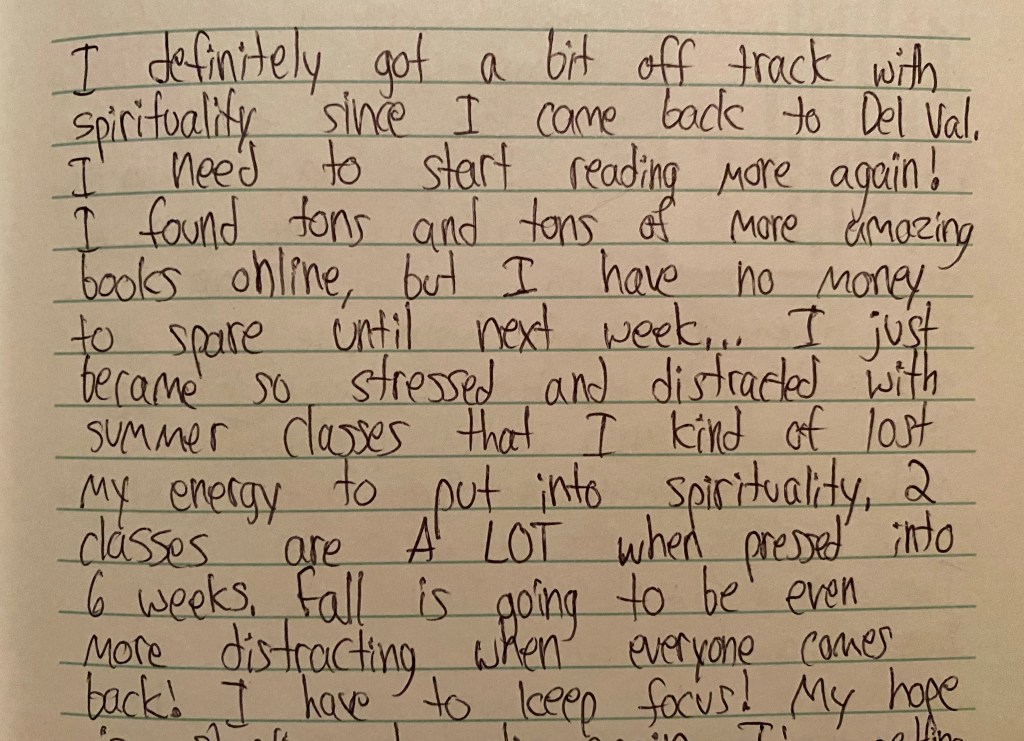 I definitely got a bit off track with
spirituality since I came back to Del Val.
I need to start reading more again!
I found tons and tons of more amazing
books online, but I have no money
to spare until next week... I just
became so stressed and distracted with
summer classes that I kind of lost
my energy to put into spirituality, 2
classes are A LOT when pressed into
6 weeks. Fall is going to be even
more distracting when everyone comes
back! I have to keep focus! My hope